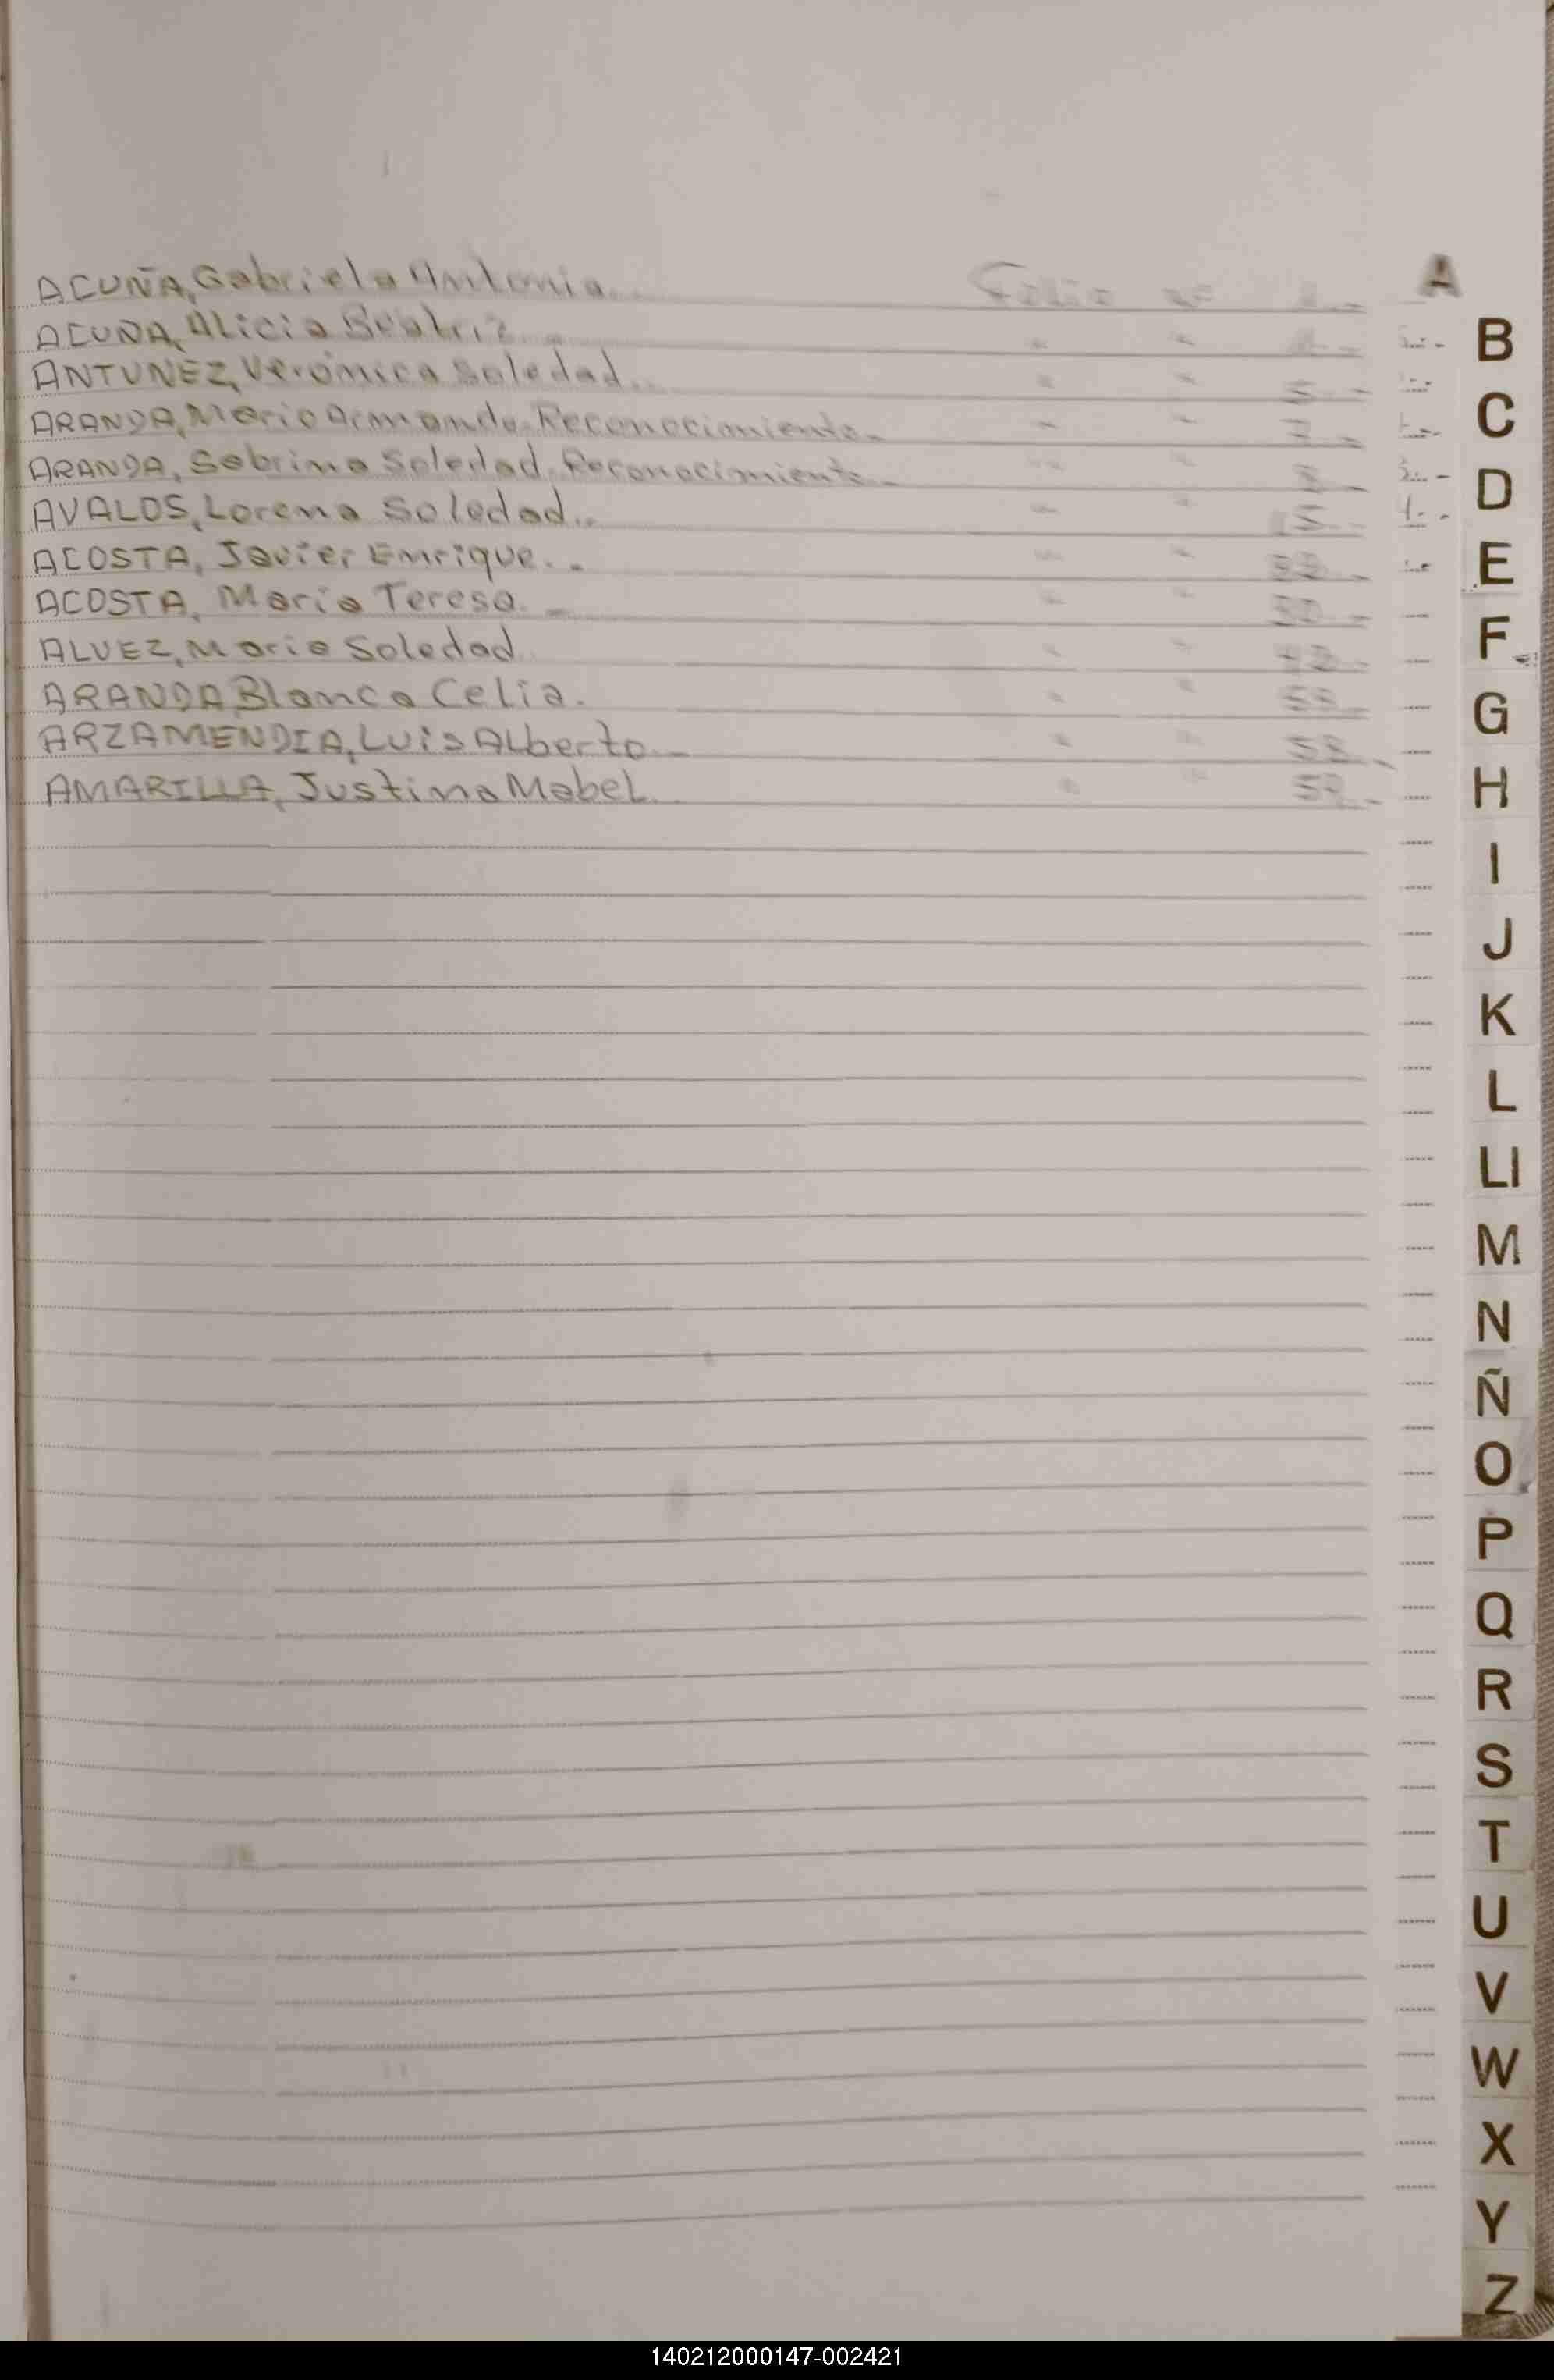 A
ACUÑA, Gabriela Antonia. Folio Nº
ACUÑA, Alicia Beatriz. " "
ANTUNEZ, Verónica Soledad. " " 5-
ARANDA, Mario Armando. Reconocimiento.- " " 7-
ARANDA, Sabrina Soledad. Reconocimiento.- " "
AVALOS, Lorena Soledad.. " " 15-
ACOSTA, Javier Enrique.. " "
ACOSTA, María Teresa.- " "
ALVEZ, María Soledad " "
ARANDA, Blanca Celia. " "
ARZAMENDIA, Luis Alberto.- " " 58-
AMARILLA, Justina Mabel. " "
B
C
D
E
F
G
H
I
J
K
L
Ll
M
N
Ñ
O
P
Q
R
S
T
U
V
W
X
Y
Z
140212000147-002421